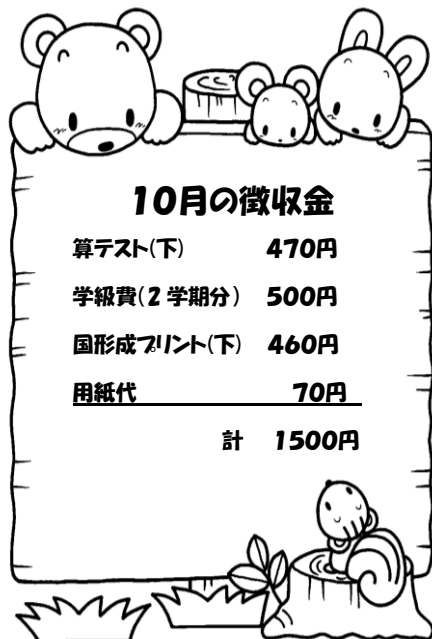 10月の徴収金
算テスト(下) 470円
学級費(2学期分) 500円
国形成プリント(下) 460円
用紙代 70円
計 1500円